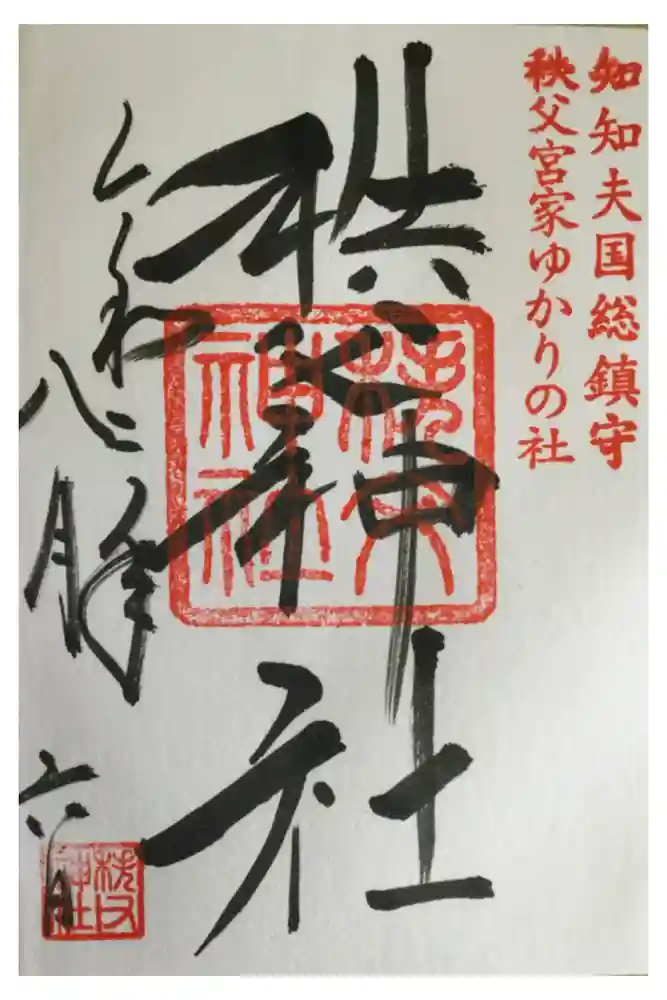 知知夫国総鎮守
秩父宮家ゆかりの社
秩父神社
秩父
神社
令和二年
八月六日
秩父
神社